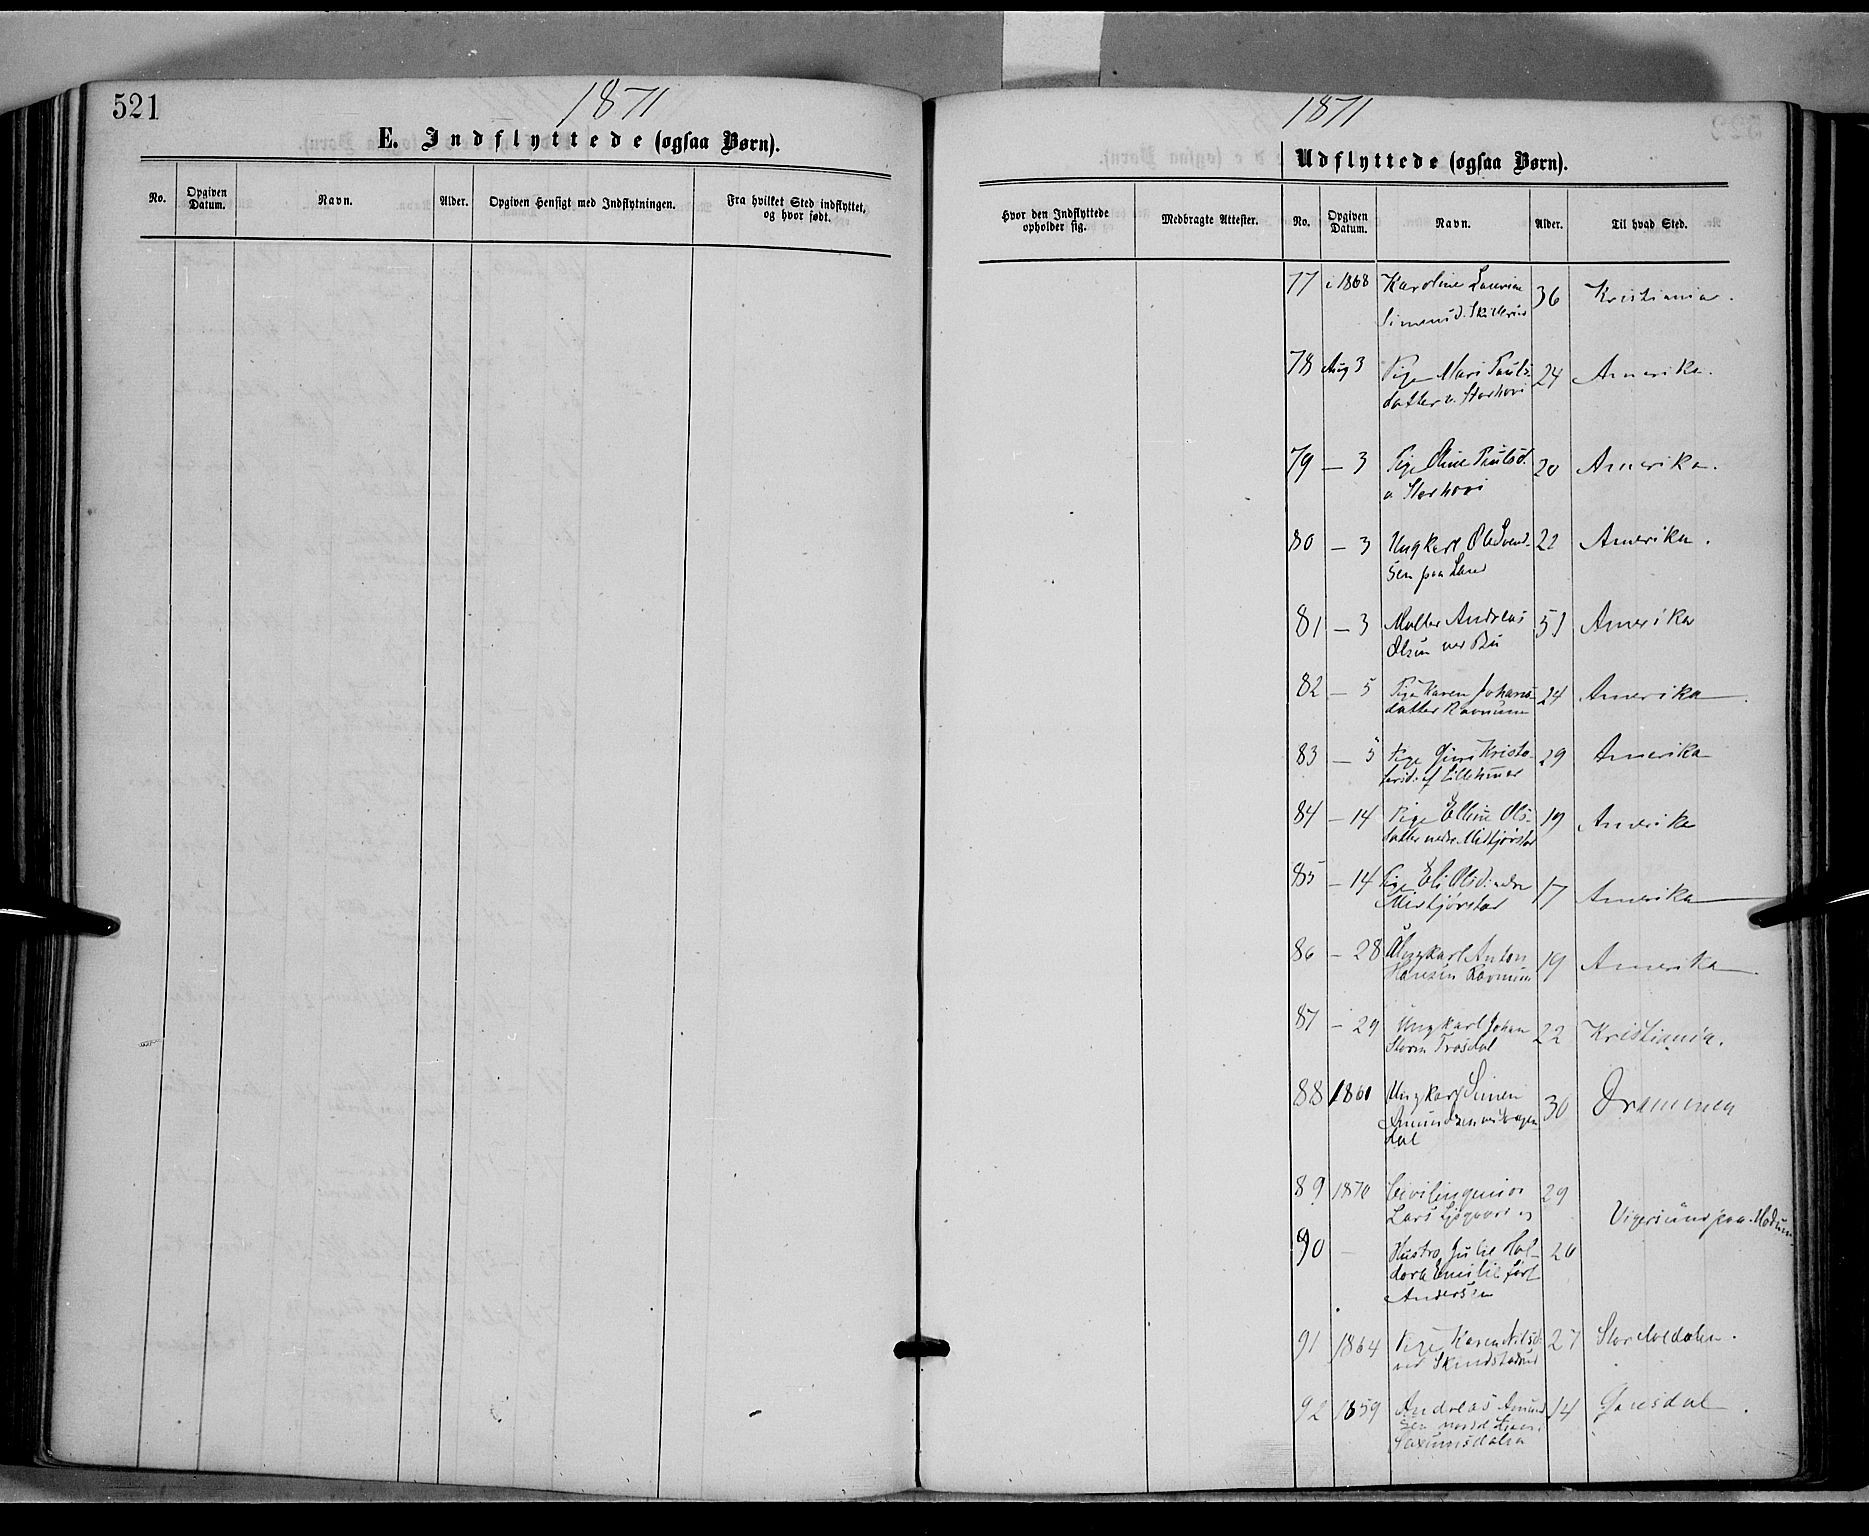 521
1871
E. Indflyttede (ogsaa Børn).
No.
Opgiven Datum.
Navn.
Alder.
Opgiven Hensigt med Indflytningen.
Fra hvilket Sted indflyttet, og hvor født.
1871
Udflyttede (ogsaa Børn).
Hvor den Indflyttede opholder sig.
Medbragte Attester.
No.
Opgiven Datum.
Navn.
Alder.
Til hvad Sted.
77 i 1868 Karoline Laurine 36 Kristiania.
Simensd.
78 Aug 3 Pige Mari Pauls- 24 Amerika.
datter v. Storhovi
79 — 3 Pige Oline Paulsd. 20 Amerika.
v Storhovi
80 — 3 Ungkarl Ole Svend- 22 Amerika.
sen paa
81 — 3 Møller Andreas 51 Amerika
Olsen
82 — 5 Pige Karen Johans- 24 Amerika
datter Rovnum
83 — 5 Pige Guri Kristo- 29 Amerika
fersd. af Lillehammer
84 — 14 Pige Elline Ols- 19 Amerika
datter nedre
85 — 14 Pige Eli Olsd. nedre 17 Amerika
86 — 28 Ungkarl Anton 19 Amerika
Hansen Rovnum
87 — 29 Ungkarl Johan 22 Kristiania.
Storm Trosdal
88 1861 Ungkarl Simen 30 Drammen
Amundsen
dal
89 1870 Civilingeniør 29
Lars og Vigersund paa Modum.
90 — Hustro Julie Hal- 26
dora Emilie født
Andersen
91 1864 Pige Karen Nilsd. 27 Store Elvedalen.
ved
92 1859 Andreas Amund 14 Gausdal.
sen
Saxumsdalen